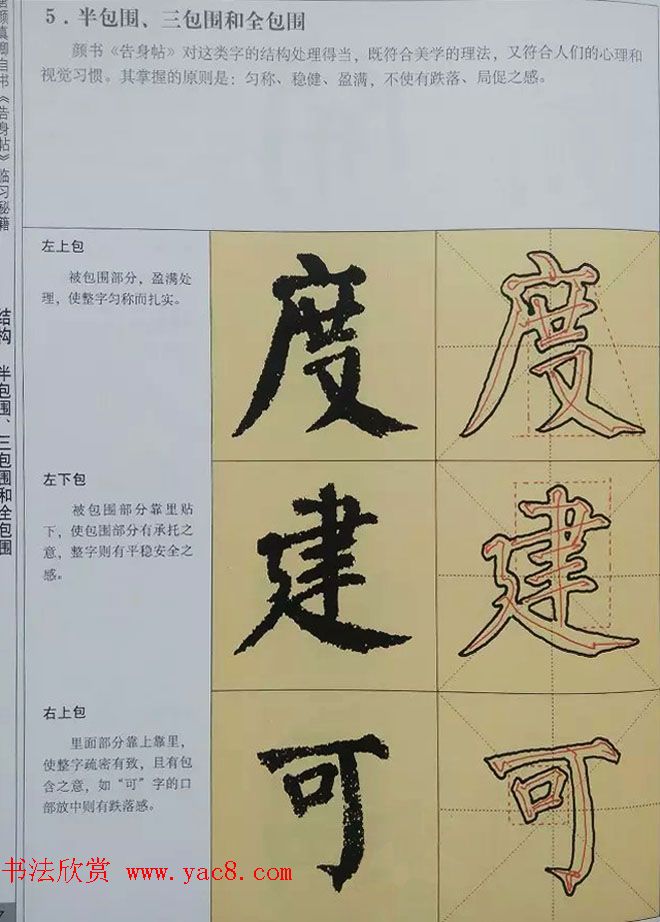 唐颜真卿自书《告身帖》临习秘籍
结构 半包围、三包围和全包围
5.半包围、三包围和全包围
颜书《告身帖》对这类字的结构处理得当，既符合美学的理法，又符合人们的心理和
视觉习惯。其掌握的原则是：匀称、稳健、盈满，不使有跌落、局促之感。
左上包
被包围部分，盈满处
理，使整字匀称而扎实。
度 度
左下包
被包围部分靠里贴
下，使包围部分有承托之
意，整字则有平稳安全之
感。
建 建
右上包
里面部分靠上靠里，
使整字疏密有致，且有包
含之意，如“可”字的口
部放中则有跌落感。
可 可
书法欣赏 www.yac8.com
7